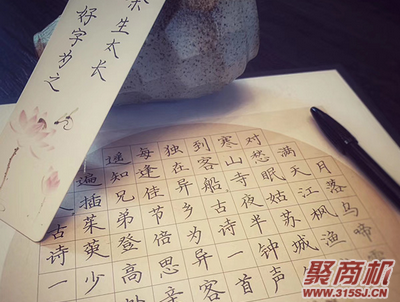 余生太长
好字为之
月落乌啼
满天江枫渔
对愁眠姑苏城
寒山寺夜半钟声
到客船古诗一首
独在异乡为异客
每逢佳节倍思亲
遥知兄弟登高处
遍插茱萸少
古诗一
聚商机
WWW.315SJ.CN